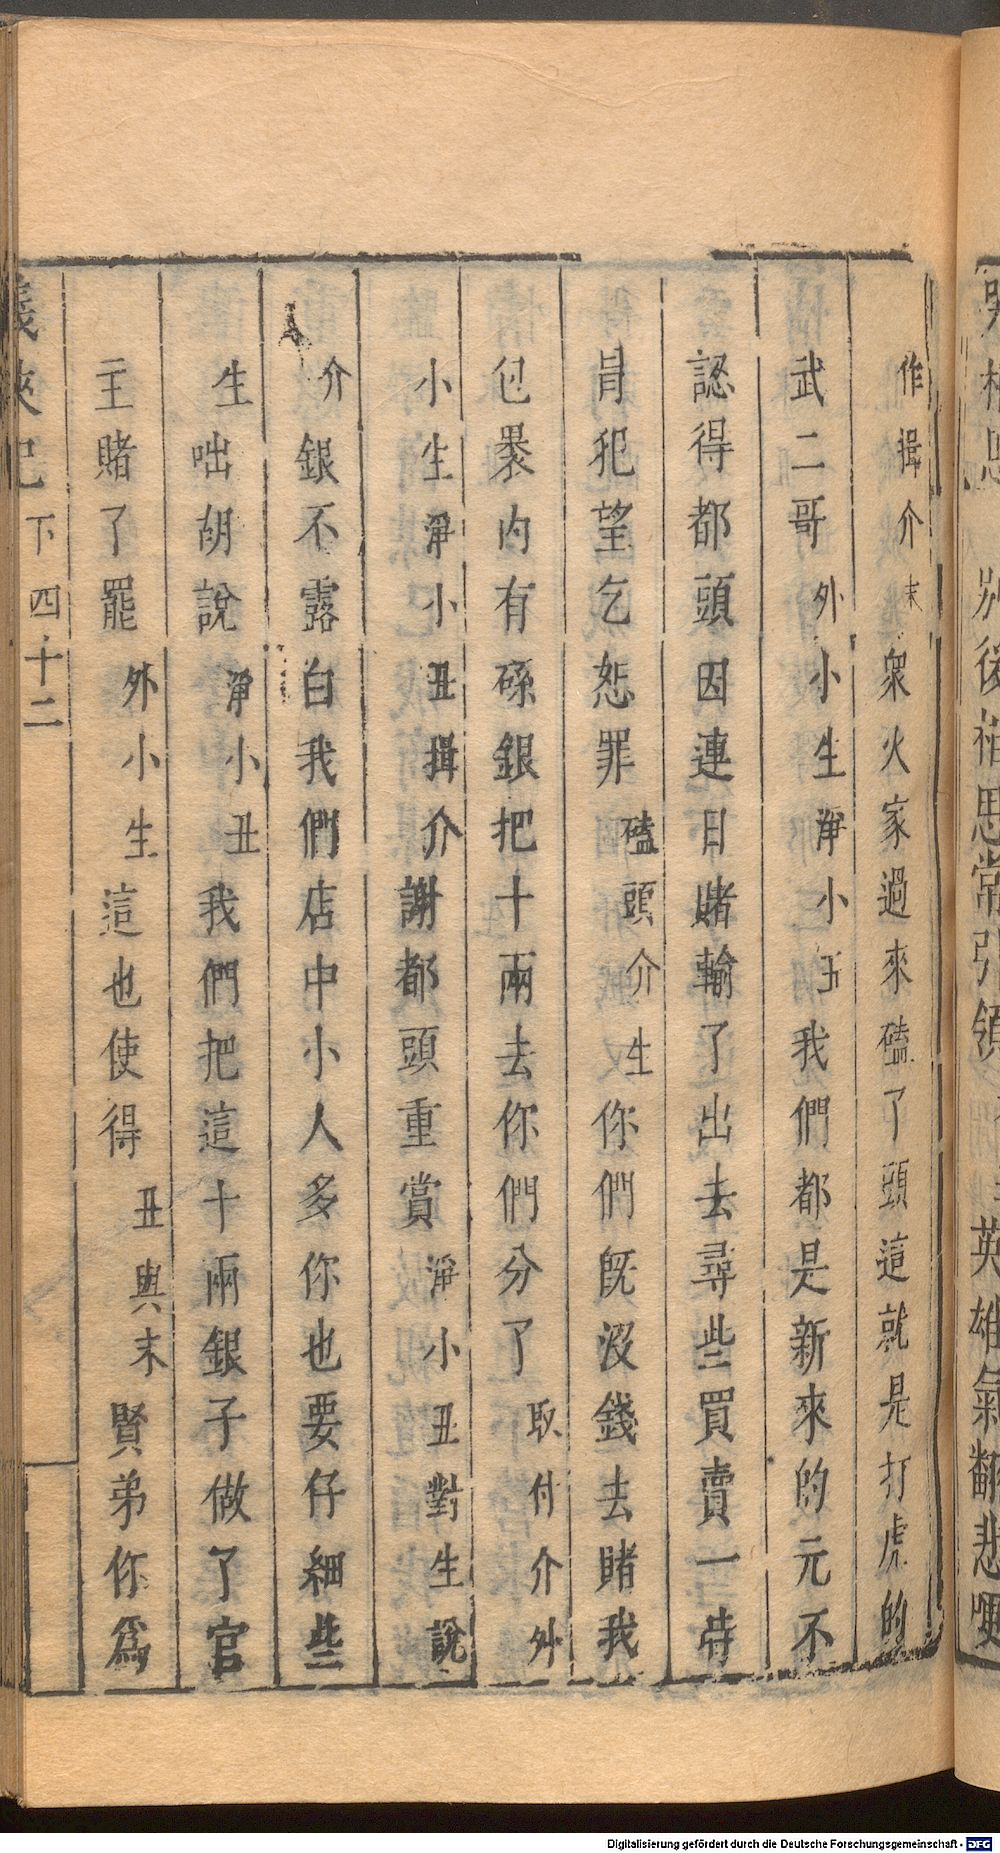 作揖介末衆火家過來磕了頭這就是打虎的
武二哥外小生淨小丑我們都是新來的元不
認得都頭因連日賭輸了出去尋些買賣一時
肯犯望乞恕罪磕頭介生你們旣沒錢去賭我
包裹內有碎銀把十兩去你們分了取付介外
小生淨小丑揖介謝都頭重賞淨小丑對生說
介銀不露白我們店中小人多你也要仔細些
生咄胡說淨小丑我們把這十兩銀子做了官
主賭了罷外小生這也使得丑與末賢弟你爲
義俠記 下 四十二
別後
思常引領
英雄氣翻悲哽
Digitalisierung gefördert durch die Deutsche Forschungsgemeinschaft - DFG